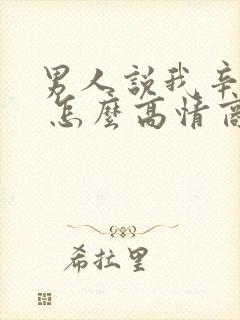 男人說我辛
怎麼高情商
希拉里